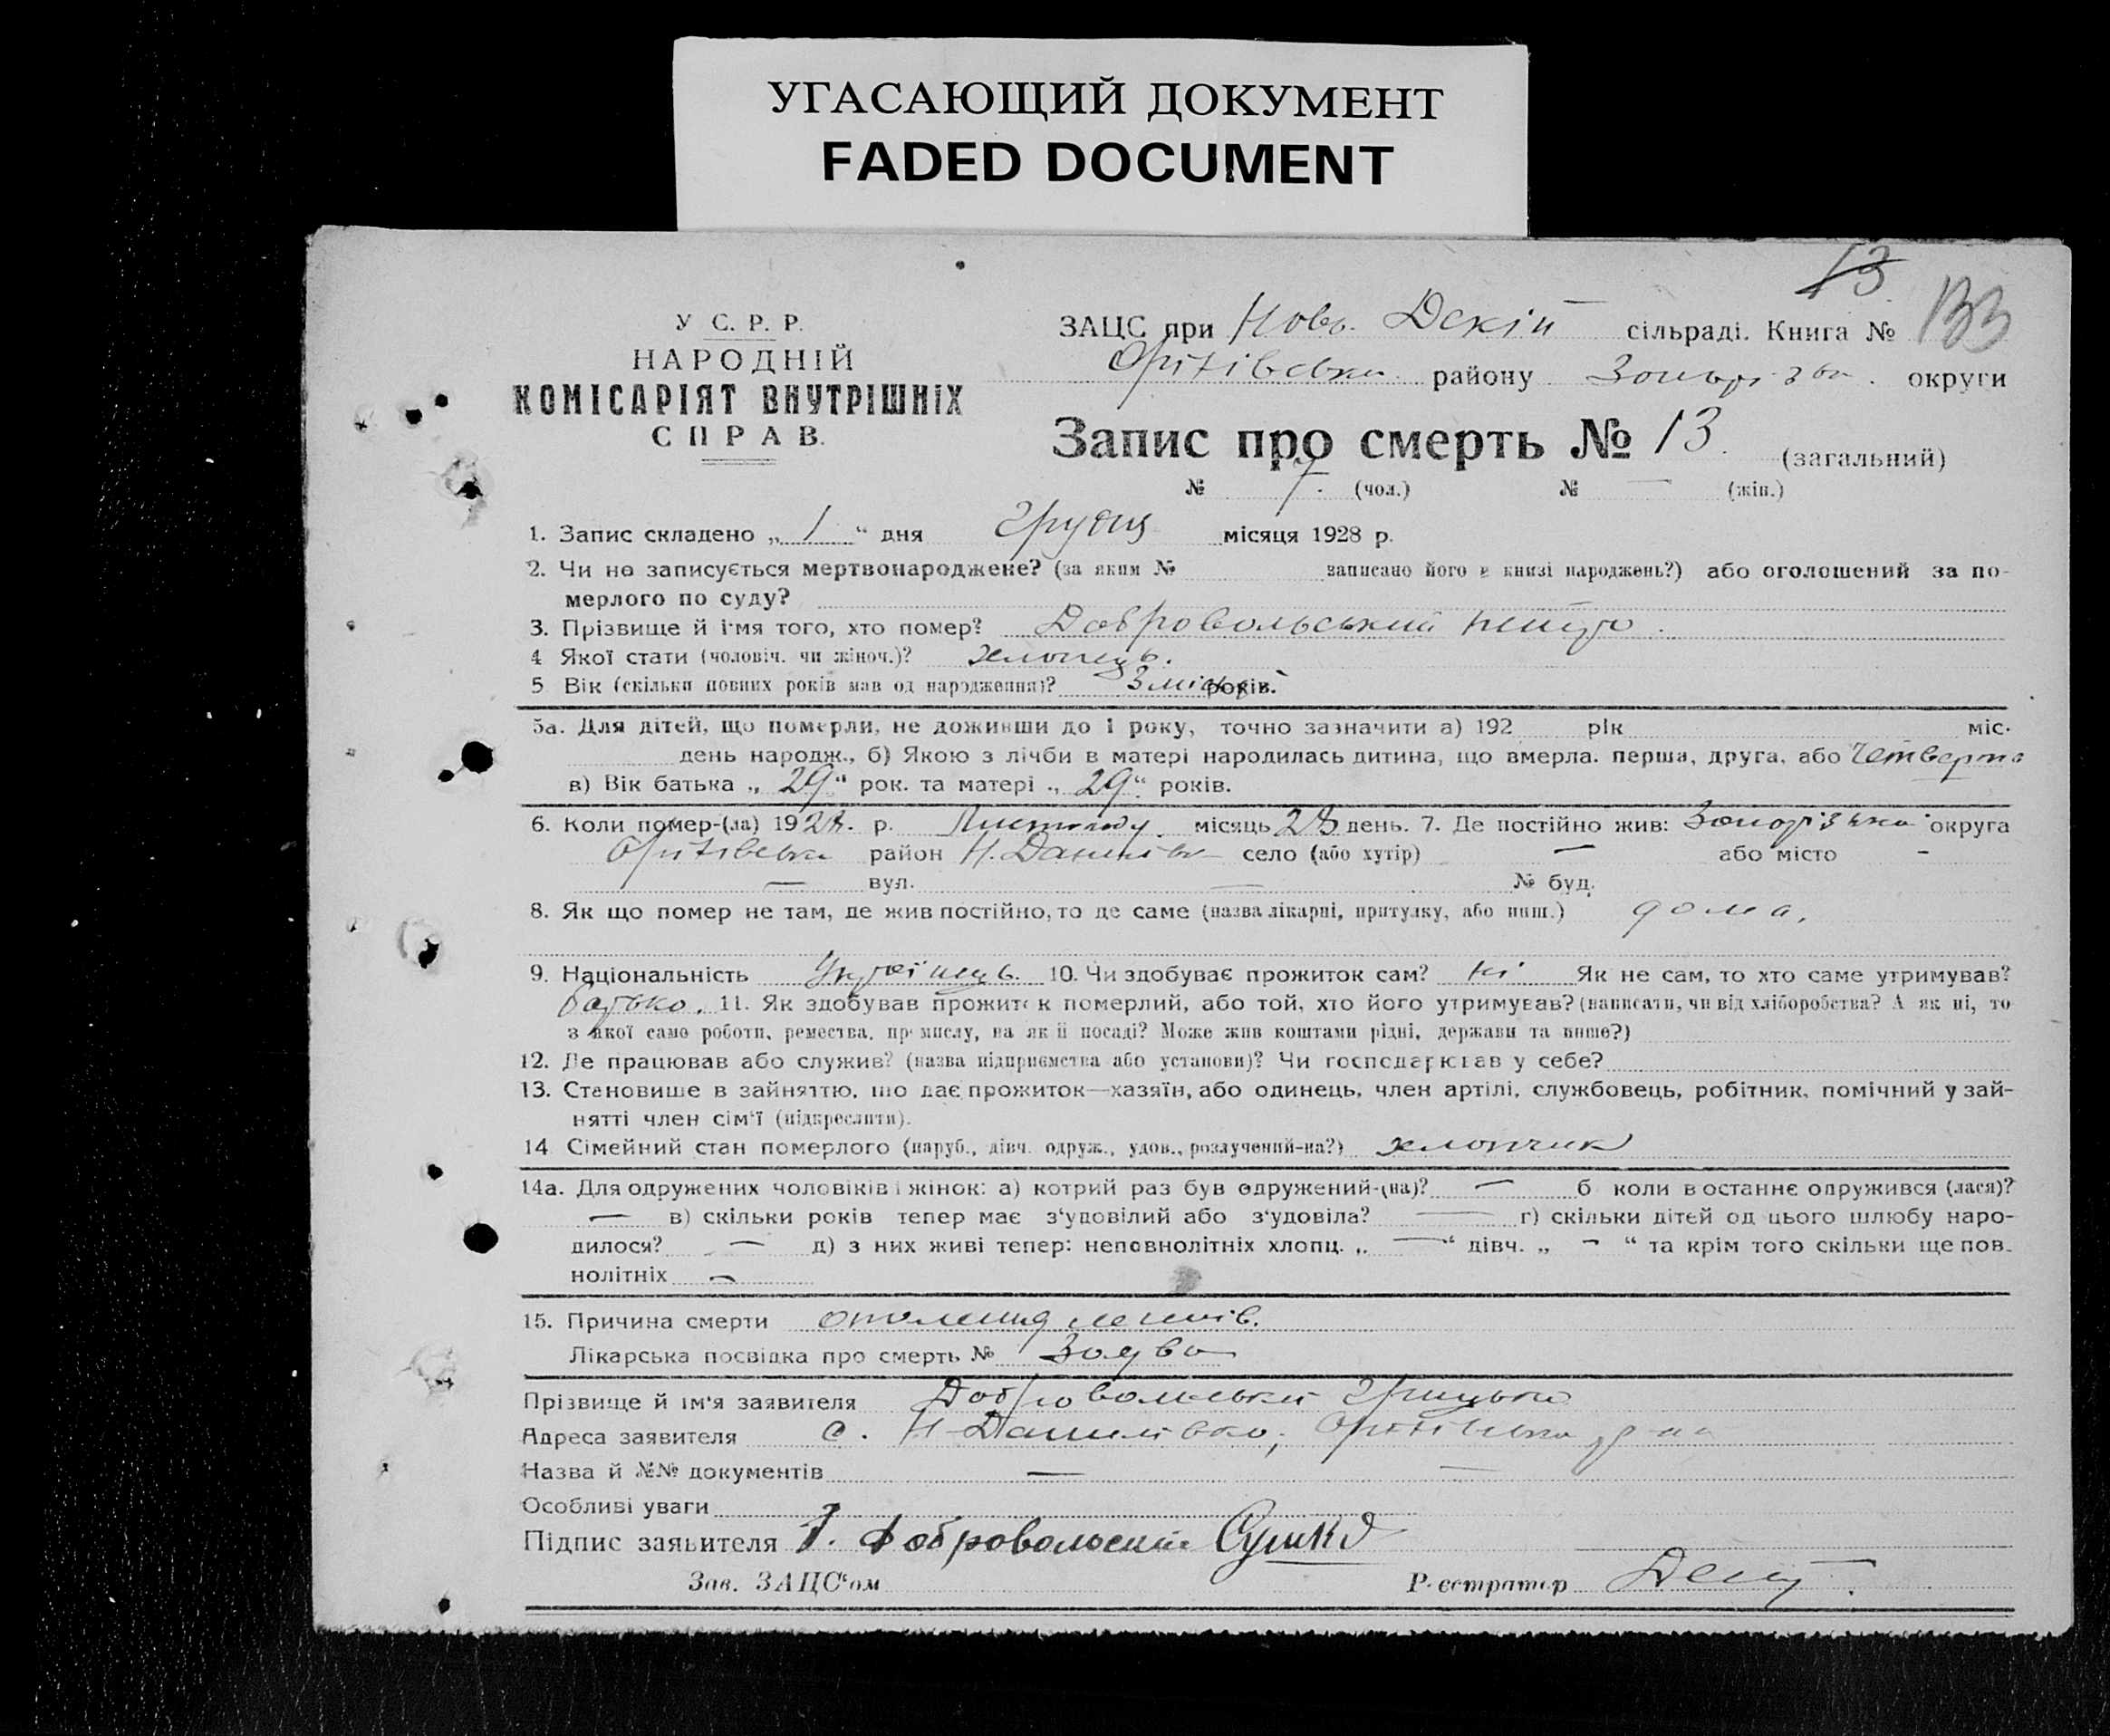 УГАСАЮЩИЙ ДОКУМЕНТ
FADED DOCUMENT
13
133
У С. Р. Р.
НАРОДНІЙ
КОМІСАРІЯТ ВНУТРІШНІХ
СПРАВ.
ЗАЦС при Ново. сільраді. Книга №
Оріхівська району округи
Запис про смерть № 13. (загальний)
№ 7. (чол.) № — (жін.)
1. Запис складено „ 1 “ дня грудня місяця 1928 р.
2. Чи не записується мертвонароджене? (за яким № записано його в книзі народжень?) або оголошений за по-
мерлого по суду?
3. Прізвище й ім'я того, хто помер? Добровольський
4 Якої стати (чоловіч. чи жіноч.)? хлопець.
5 Вік (скільки повних років мав од народження)? 3 років.
5а. Для дітей, що померли, не доживши до 1 року, точно зазначити а) 192 рік міс.
день народж., б) Якою з лічби в матері народилась дитина, що вмерла. перша, друга, або четверта
в) Вік батька „ 29 “ рок. та матері „ 29 “ років.
6. Коли помер-(ла) 1928. р. Листопаду. місяць 28 день. 7. Де постійно жив: округа
Оріхівська район Н. Данилівка село (або хутір) — або місто -
— вул. — № буд.
8. Як що помер не там, де жив постійно, то де саме (назва лікарні, притулку, або инш.) дома,
9. Національність Українець. 10. Чи здобуває прожиток сам? ні Як не сам, то хто саме утримував?
батько. 11. Як здобував прожиток померлий, або той, хто його утримував? (написати, чи від хліборобства? А як ні, то
з якої само роботи, ремества, промислу, на якій посаді? Може жив коштами рідні, держави та инше?)
12. Де працював або служив? (назва підприємства або установи)? Чи господарював у себе?
13. Становище в зайняттю, що дає прожиток—хазяїн, або одинець, член артілі, службовець, робітник, помічний у зай-
нятті член сім'ї (підкреслити).
14 Сімейний стан померлого (паруб., дівч. одруж., удов., розлучений-на?) хлопчик
14а. Для одружених чоловіків і жінок: а) котрий раз був одружений-(на)? — б коли в останнє одружився (лася)?
— в) скільки років тепер має з‘удовілий або з‘удовіла? — г) скільки дітей од цього шлюбу наро-
дилося? — д) з них живі тепер: неповнолітніх хлопц. „ — “ дівч. „ - “ та крім того скільки ще пов.
нолітніх —
15. Причина смерти
Лікарська посвідка про смерть №
Прізвище й ім'я заявителя Добровольський Грицько
Адреса заявителя с. Н-Данилівка, Оріхівська р-на
Назва й №№ документів —
Особливі уваги
Підпис заявителя Добровольский
Зав. ЗАЦС‘ом Реєстратор